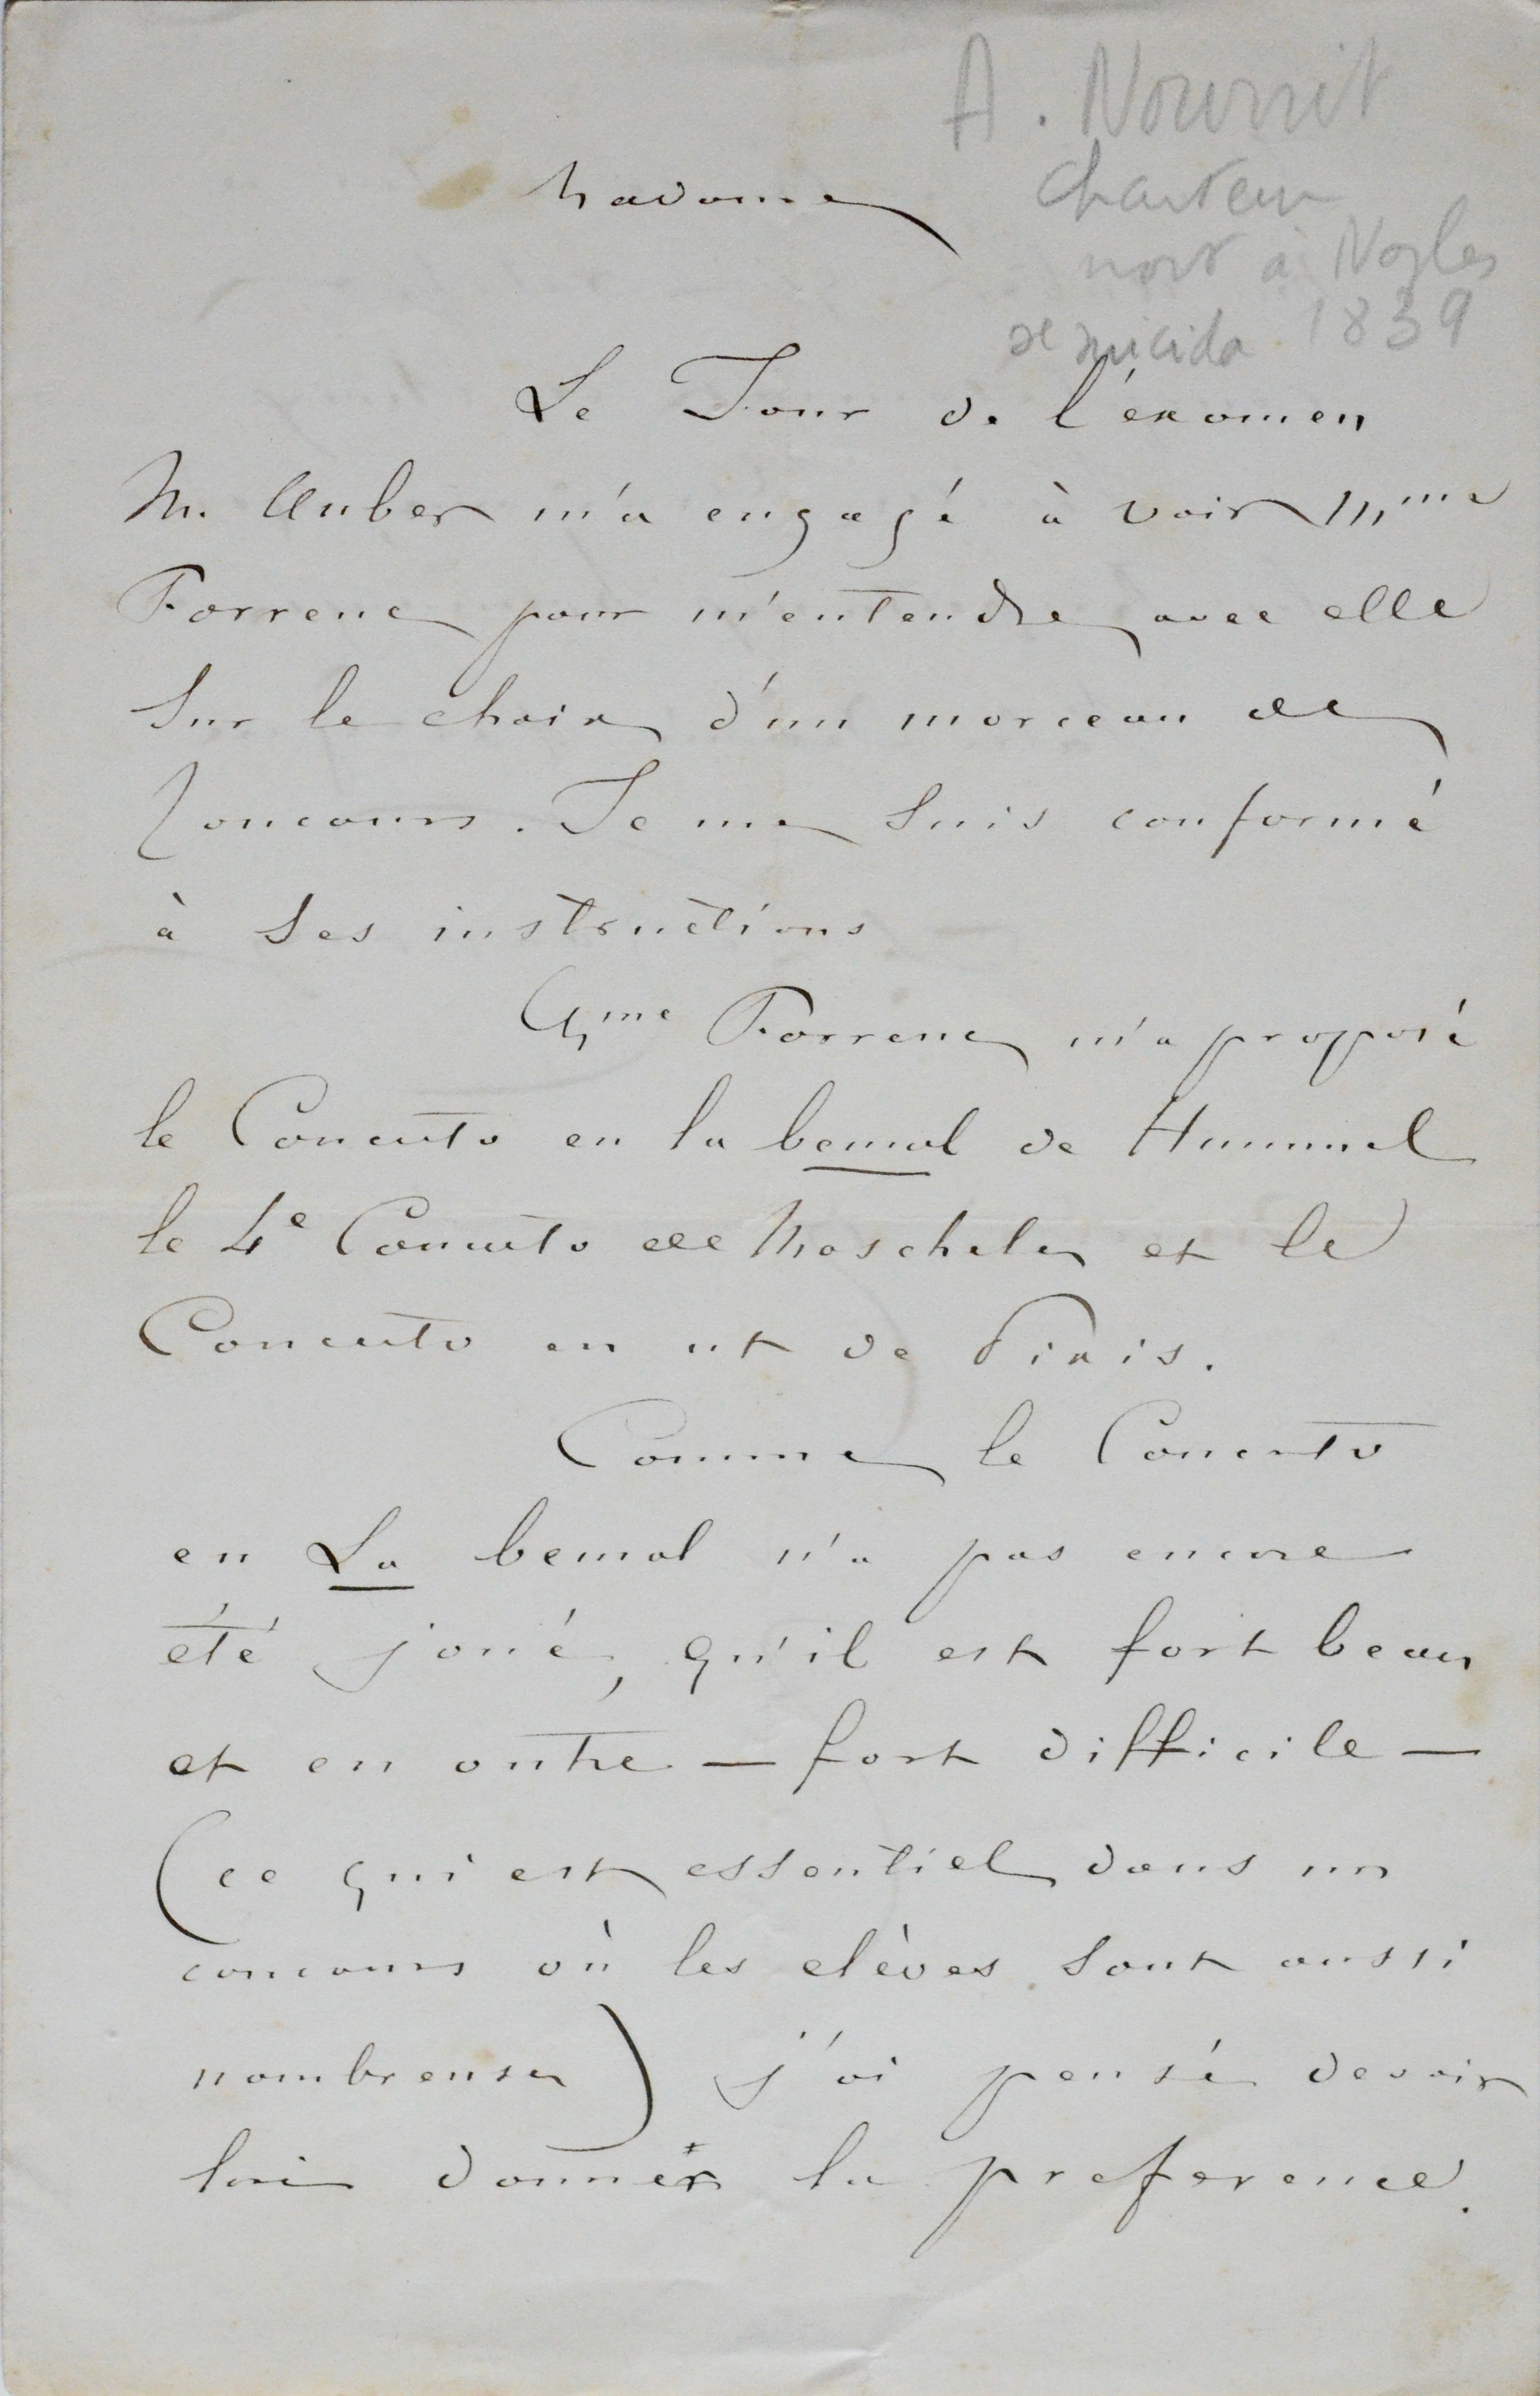 A. Nourrit
chanteur
mort à Naples
se suicida 1839
Madame
Le Jour de l'éxamen
M. Auber m'a engagé à voir Mme
Farrenc pour m'entendre avec elle
Sur le choix d'un morceau de
Concours. Je me suis conformé
à Ses instructions
Mme Farrenc m'a proposé
le Concerto en la bemol de Hummel
le 4e Concerto de Moscheles et le
Concerto en ut de Pixis.
Comme le Concerto
en La bemol n'a pas encore
été joué, qu'il est fort beau
et en outre — fort difficile —
(ce qui est essentiel dans un
concours où les elèves sont aussi
nombreuses) j'ai pensé devoir
lui donner la preference.